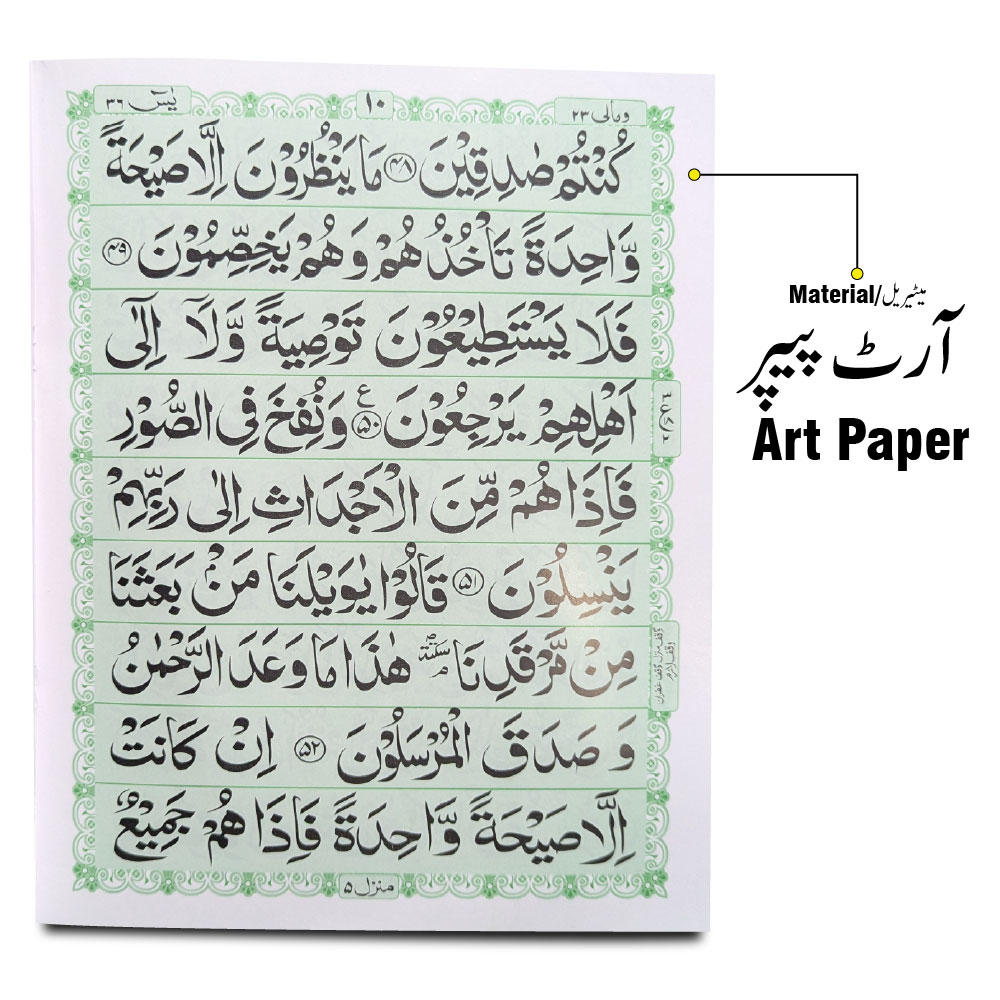 ومالی ۲۳ ۱۰ یٰسٓ ۳۶
كُنْتُمْ صٰدِقِیْنَ ۴۸ مَا یَنْظُرُوْنَ اِلَّا صَیْحَةً
وَّاحِدَةً تَاْخُذُهُمْ وَهُمْ یَخِصِّمُوْنَ ۴۹
فَلَا یَسْتَطِیْعُوْنَ تَوْصِیَةً وَّلَاۤ اِلٰۤی
اَهْلِهِمْ یَرْجِعُوْنَ ع ۵۰ وَنُفِخَ فِی الصُّوْرِ
فَاِذَا هُمْ مِّنَ الْاَجْدَاثِ اِلٰی رَبِّهِمْ
یَنْسِلُوْنَ ۵۱ قَالُوْا یٰوَیْلَنَا مَنْۢ بَعَثَنَا
مِنْ مَّرْقَدِنَا سكتة هٰذَا مَا وَعَدَ الرَّحْمٰنُ
وَصَدَقَ الْمُرْسَلُوْنَ ۵۲ اِنْ كَانَتْ
اِلَّا صَیْحَةً وَّاحِدَةً فَاِذَا هُمْ جَمِیْعٌ
منزل ۵
Material/میٹیریل
آرٹ پیپر
Art Paper